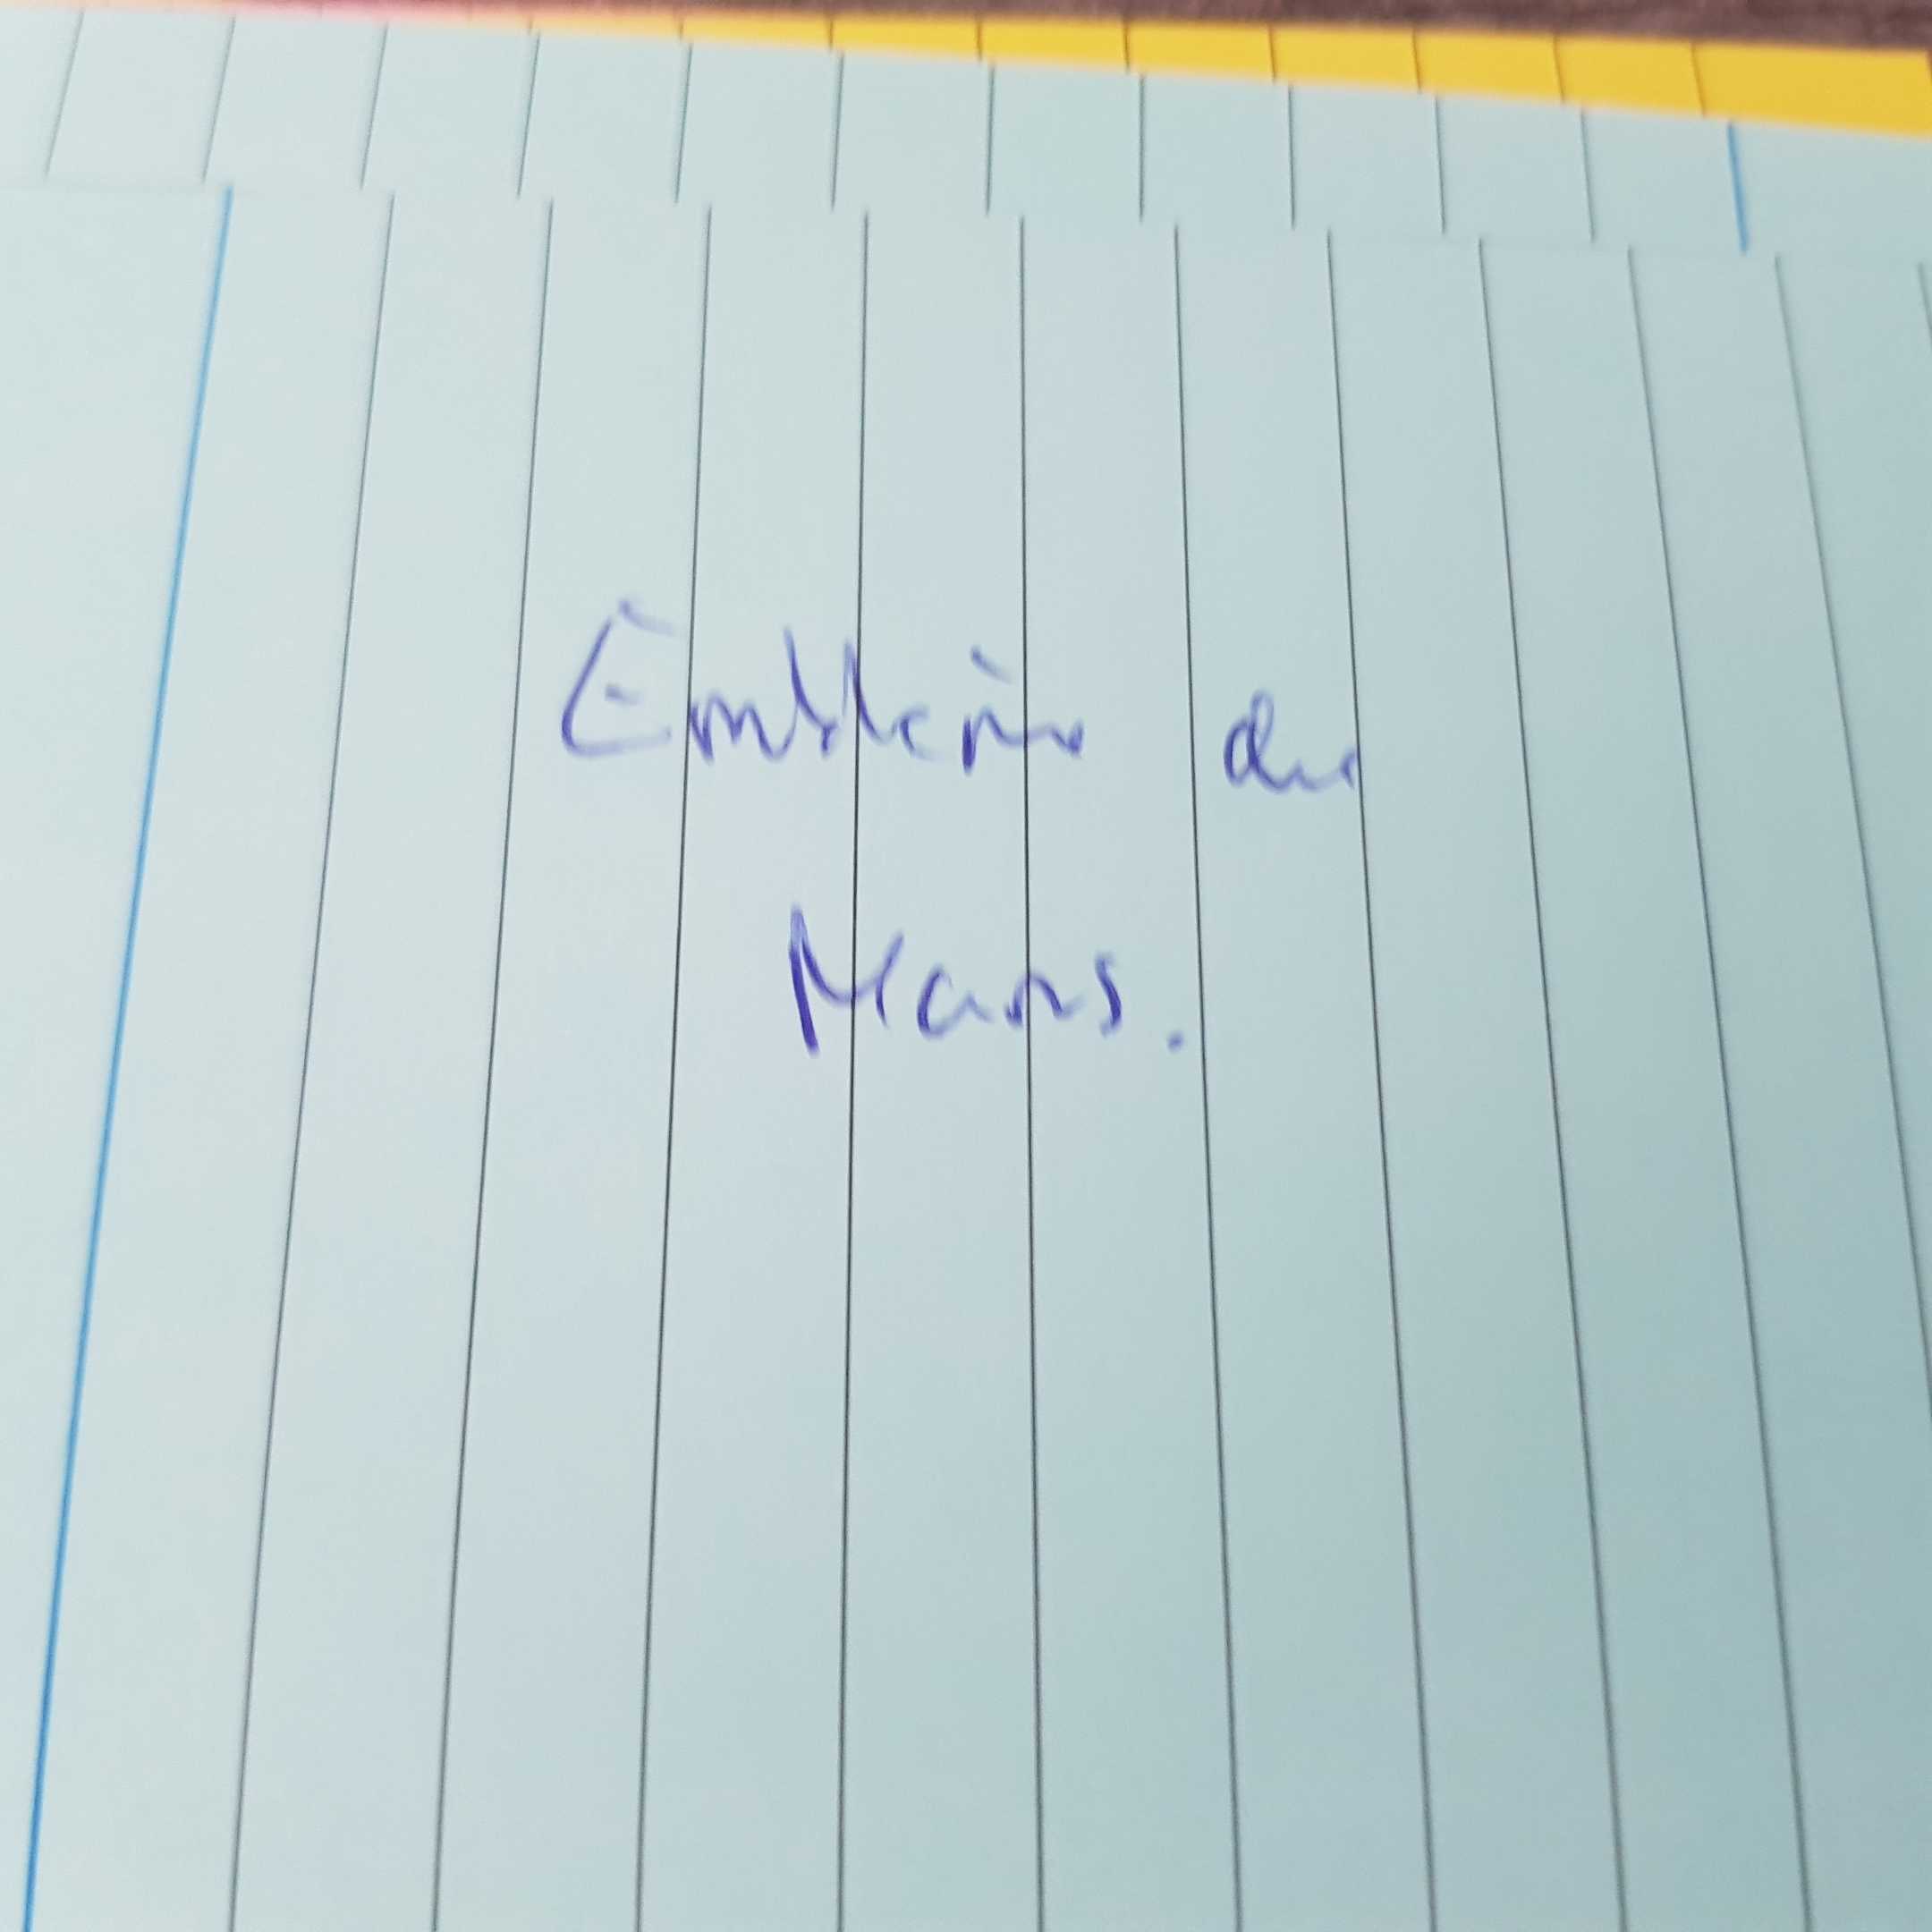 Emblème du
Mans.